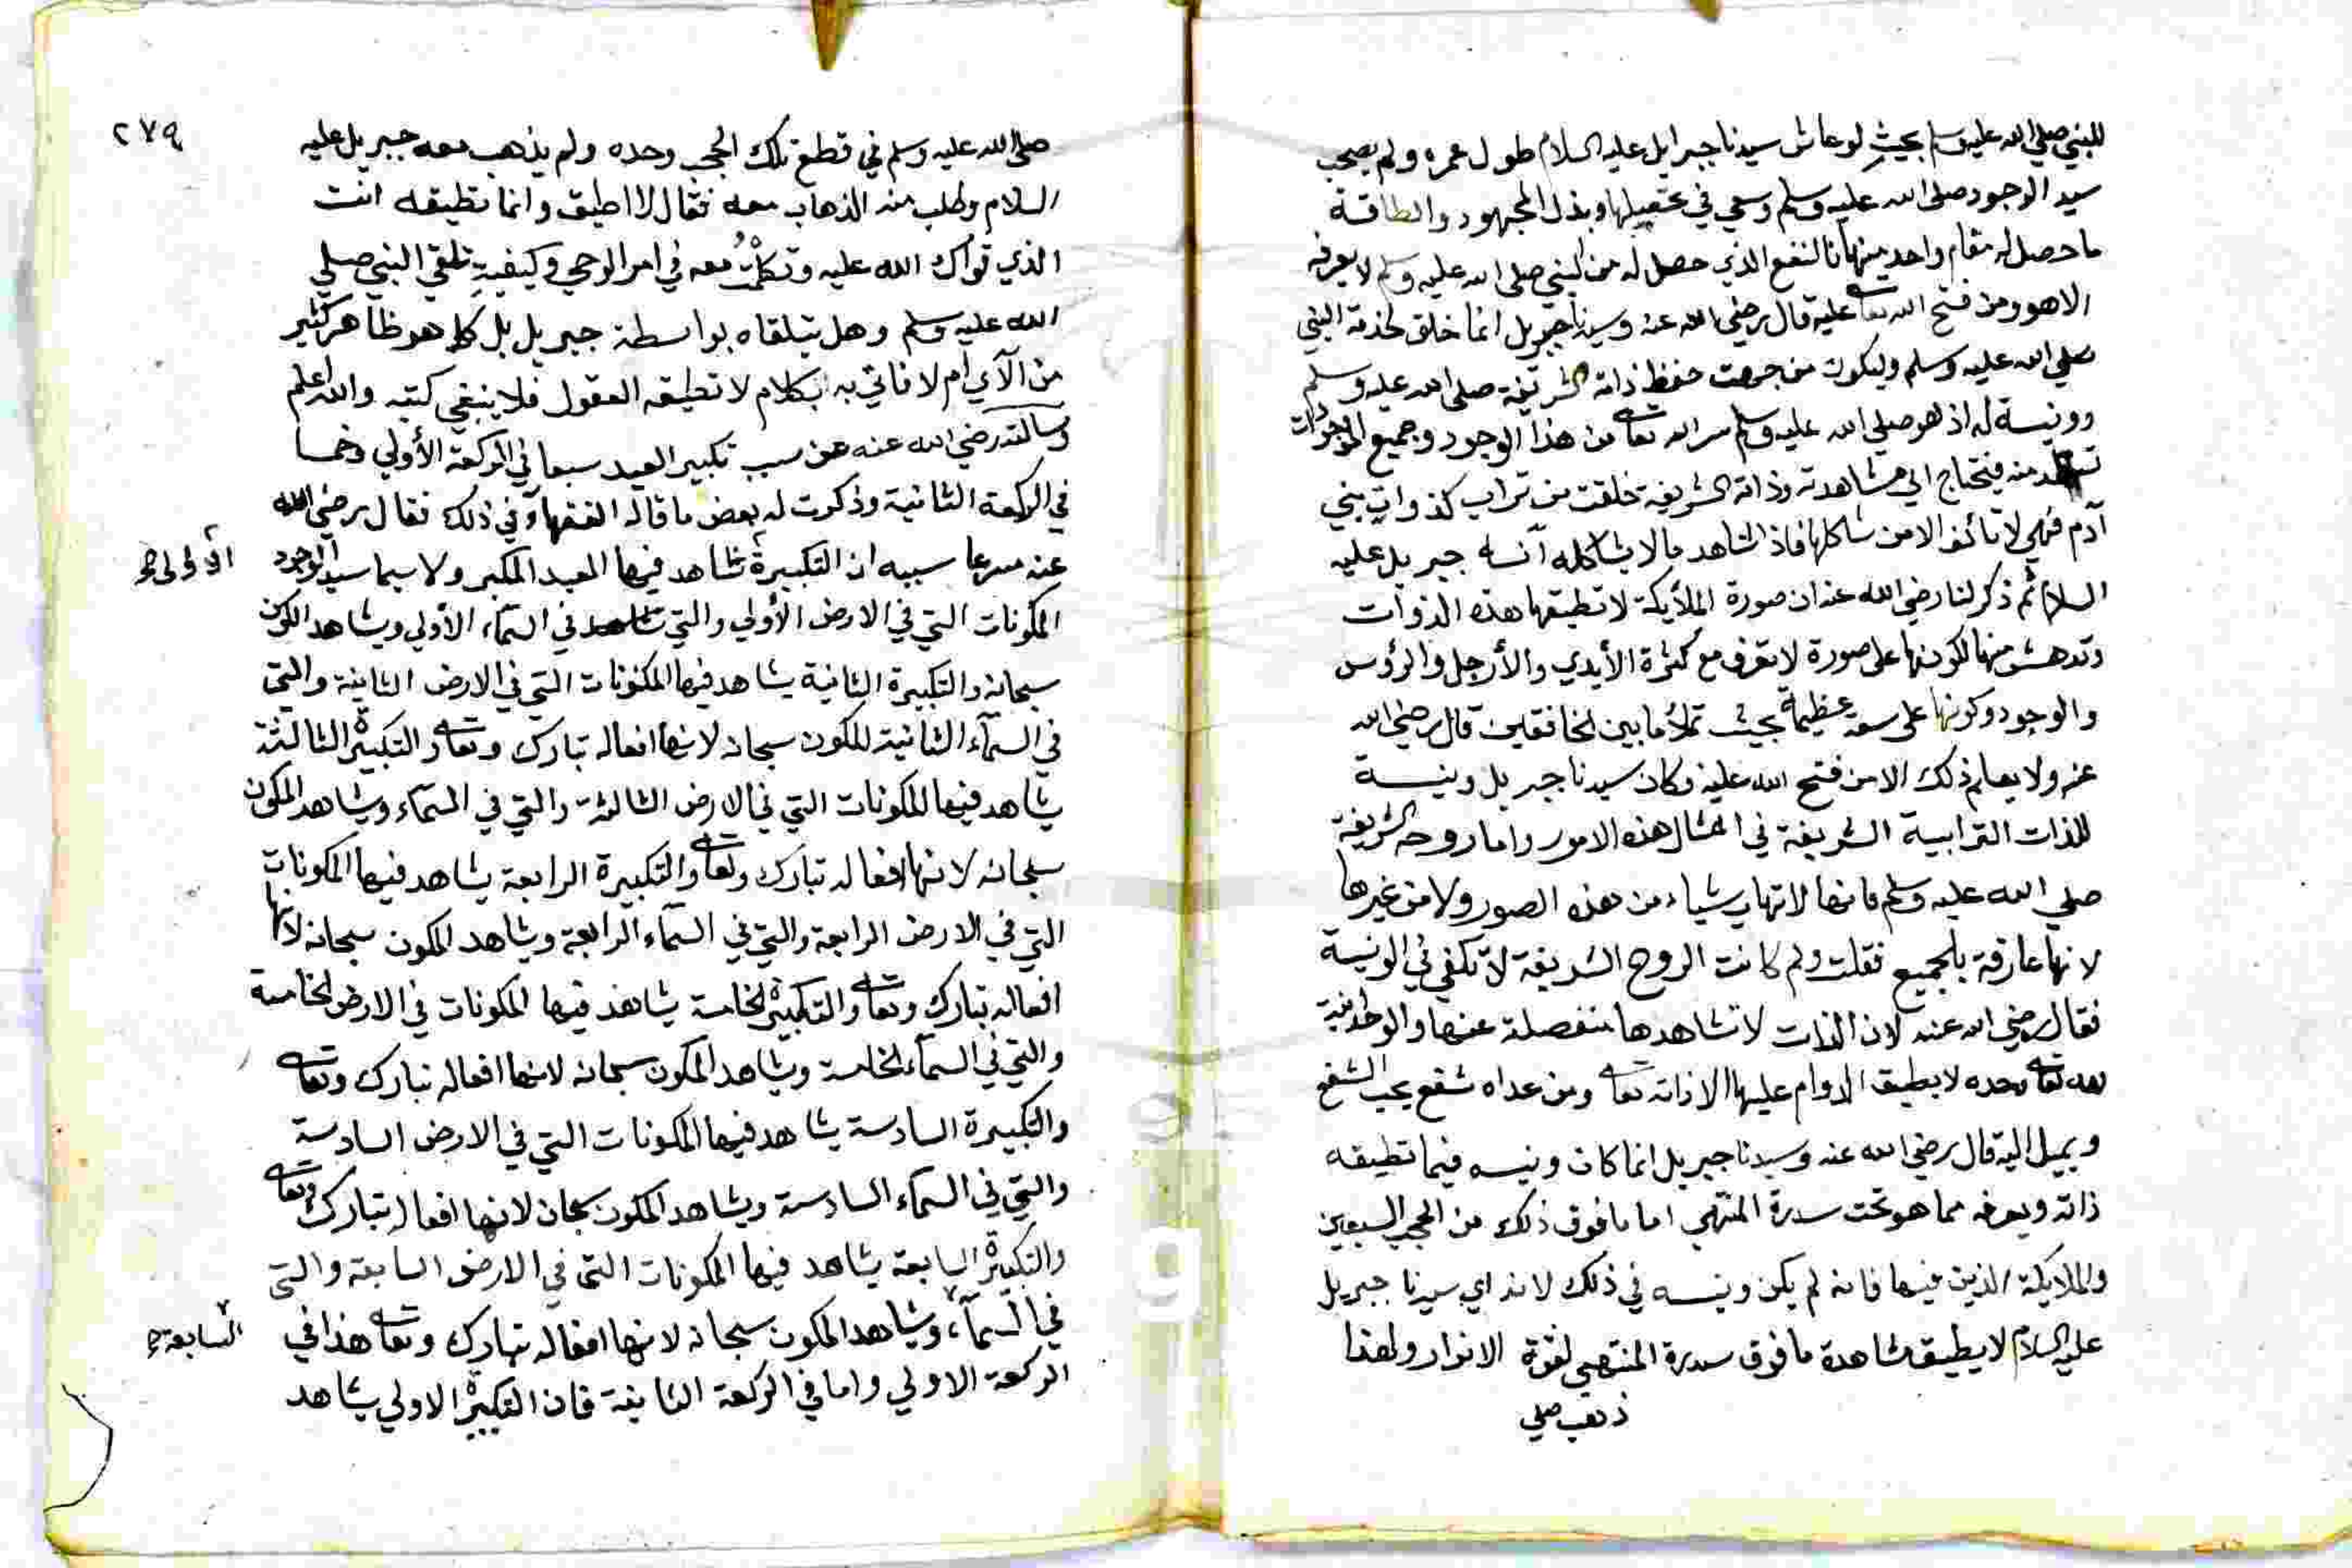 للنبي صلي الله عليه وسلم بحيث لو عاش سيدنا جبرايل عليه السلام طول عمره ولم يصحب
سيد الوجود صلى الله عليه وسلم وسعي في تحصيلها وبذل المجهود والطاقة
ما حصل له مقام واحد منها فالنفع الذي حصل له من النبي صلى الله عليه وسلم لا يعرفه
الا هو ومن فتح الله تعالى عليه قال رضي الله عنه وسيدنا جبريل انما خلق لخدمة النبي
صلي الله عليه وسلم وليكون من جملت حفظ ذاته الشريفة صلى الله عليه وسلم
وونيسة له اذ هو صلي الله عليه وسلم سر الله تعالى من هذا الوجود وجميع الموجودات
تستمد منه فيحتاج الي مشاهدته وذاته الشريفة خلقت من تراب كذوات بني
آدم فهي لا تألف الا من شاكلها فاذا شاهد ما لا يشاكله آنسه جبريل عليه
السلام ثم ذكر لنا رضي الله عنه ان صورة الملأيكة لا تطيقها هذه الذوات
وتدهش منها لكونها على صورة لا تعرف مع كثرة الأيدي والأرجل والرؤس
والوجود وكونها على سعة عظيمة بحيث تملأ ما بين الخافقين قال رضي الله
عنه ولا يعلم ذلك الا من فتح الله عليه وكان سيدنا جبريل ونيسة
للذات الترابية الشريفة في امثال هذه الامور واما روحه الشريفة
صلي الله عليه وسلم فانها لا تهاب شياء من هذه الصور ولا من غيرها
لانها عارفة بالجميع فقلت ولم كانت الروح الشريفة لا تكفي في الونيسة
فقال رضي الله عنه لان الذات لا تشاهدها منفصلة عنها والوحدانية
لله تعالى وحده لا يطيق الدوام عليها الا ذاته تعالى ومن عداه شفع يحب الشفع
ويميل اليه قال رضي الله عنه وسيدنا جبريل انما كان ونيسه فيما تطيقه
ذاته ويعرفه مما هو تحت سدرة المنتهي اما ما فوق ذلك من الحجب السبعين
والملايكة الذين فيها فانه لم يكن ونيسه في ذلك لانه اي سيدنا جبريل
عليه السلام لا يطيق مشاهدة ما فوق سدرة المنتهي لقوة الانوار ولهذا
ذهب صلي
٢٧٩
صلى الله عليه وسلم في قطع تلك الحجب وحده ولم يذهب معه جبريل عليه
السلام وطلب منه الذهاب معه فقال لا اطيق وانما تطيقه انت
الذي قواك الله عليه وتكلمت معه في امر الوحي وكيفية تلقي النبي صلي
الله عليه وسلم وهل يتلقاه بواسطة جبريل بل كما هو ظاهر كثير
من الآي أم لا فاتي به بكلام لا تطيقه العقول فلا ينبغي كتبه والله اعلم
وسالته رضي الله عنه عن سبب تكبير العيد سبعا في الركعة الأولي وخمسا
في الركعة الثانية وذكرت له بعض ما قاله الفقهآء في ذلك فقال رضي الله
عنه مسرعا سببه ان التكبيرة تشاهد فيها العبد المكبر ولا سيما سيد الوجود
الأولى صح
المكونات التي في الارض الأولي والتي تشاهد في السمآء الأولي ويشاهد المكون
سبحانه والتكبيرة الثانية يشاهد فيها المكونات التي في الارض الثانية والتي
في السمآء الثانية للمكون سبحانه لانها افعاله تبارك وتعالى والتكبيرة الثالثة
يشاهد فيها المكونات التي في الارض الثالثة والتي في السمآء ويشاهد المكون
سبحانه لانها افعاله تبارك وتعالى والتكبيرة الرابعة يشاهد فيها المكونات
التي في الارض الرابعة والتي في السمآء الرابعة ويشاهد المكون سبحانه لانها
افعاله تبارك وتعالى والتكبيرة الخامسة يشاهد فيها المكونات في الارض الخامسة
والتي في السمآء الخامسة ويشاهد المكون سبحانه لانها افعاله تبارك وتعالى
والتكبيرة السادسة يشاهد فيها المكونات التي في الارض السادسة
والتي في السمآء السادسة ويشاهد المكون سبحانه لانها افعاله تبارك وتعالى
والتكبيرة السابعة يشاهد فيها المكونات التي في الارض السابعة والتي
في السمآء ويشاهد المكون سبحانه لانها افعاله تبارك وتعالى هذا في
السابعة صح
الركعة الاولي واما في الركعة الثانية فان التكبيرة الاولي يشاهد